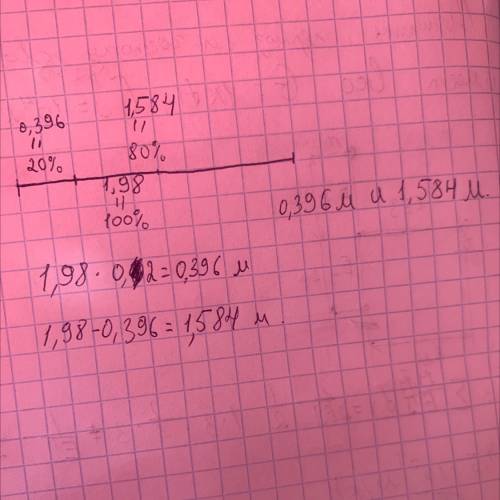 0,396
||
20%
1,584
||
80%
1,98
||
100%
0,396 м и 1,584 м.
1,98 · 0,2 = 0,396 м
1,98 - 0,396 = 1,584 м.